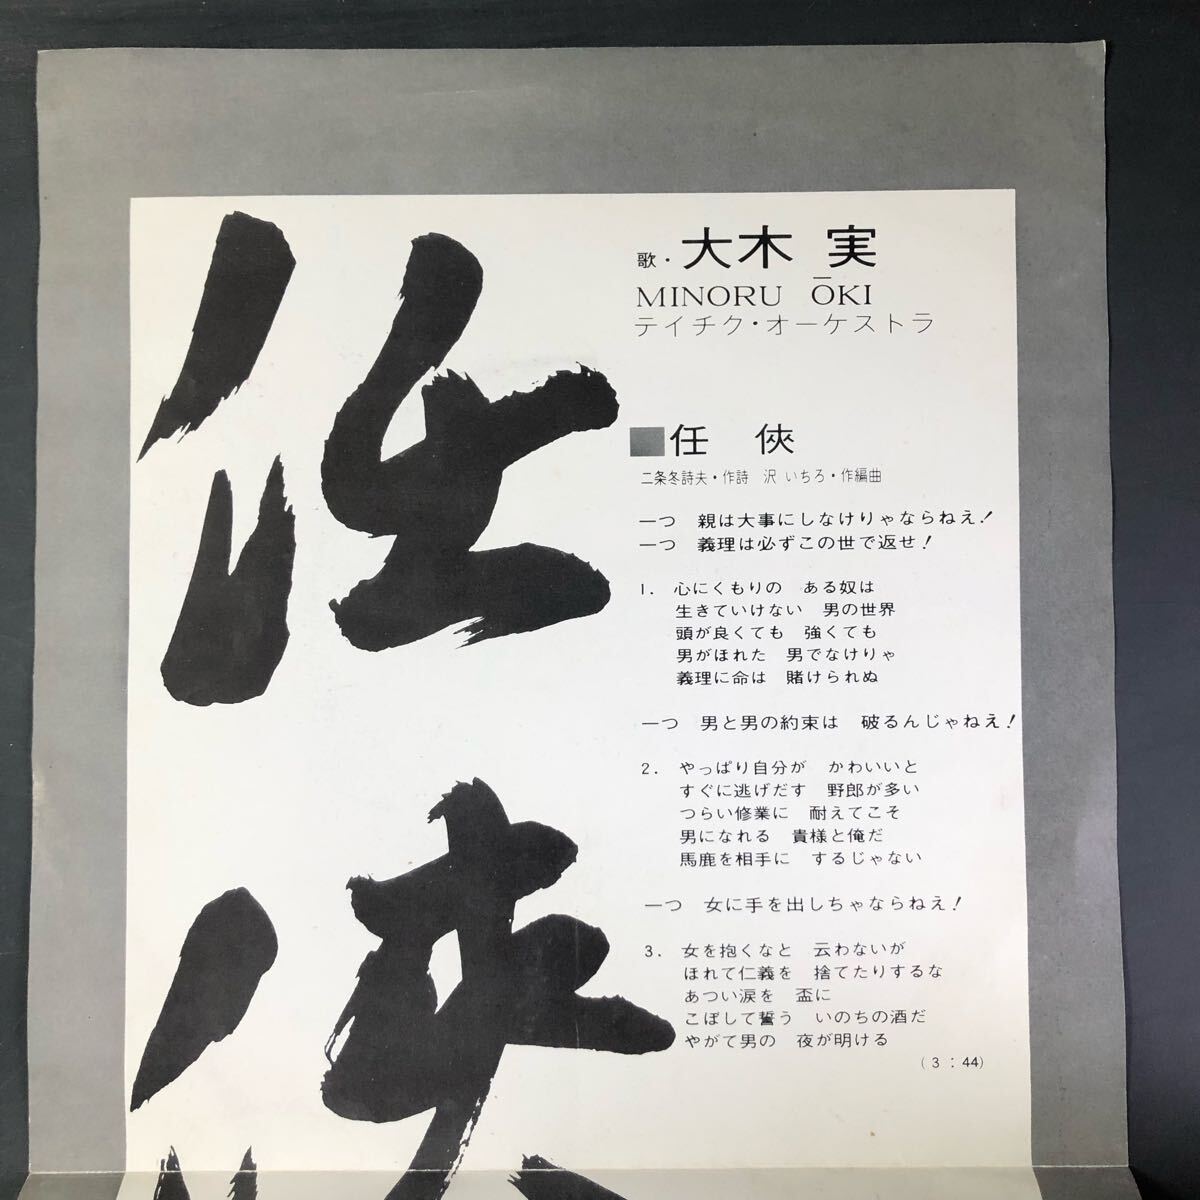 任侠
歌・大木 実
MINORU ŌKI
テイチク・オーケストラ
■任 俠
二条冬詩夫・作詩 沢 いちろ・作編曲
一つ 親は大事にしなけりゃならねえ!
一つ 義理は必ずこの世で返せ!
1. 心にくもりの ある奴は
生きていけない 男の世界
頭が良くても 強くても
男がほれた 男でなけりゃ
義理に命は 賭けられぬ
一つ 男と男の約束は 破るんじゃねえ!
2. やっぱり自分が かわいいと
すぐに逃げだす 野郎が多い
つらい修業に 耐えてこそ
男になれる 貴様と俺だ
馬鹿を相手に するじゃない
一つ 女に手を出しちゃならねえ!
3. 女を抱くなと 云わないが
ほれて仁義を 捨てたりするな
あつい涙を 盃に
こぼして誓う いのちの酒だ
やがて男の 夜が明ける
(3:44)